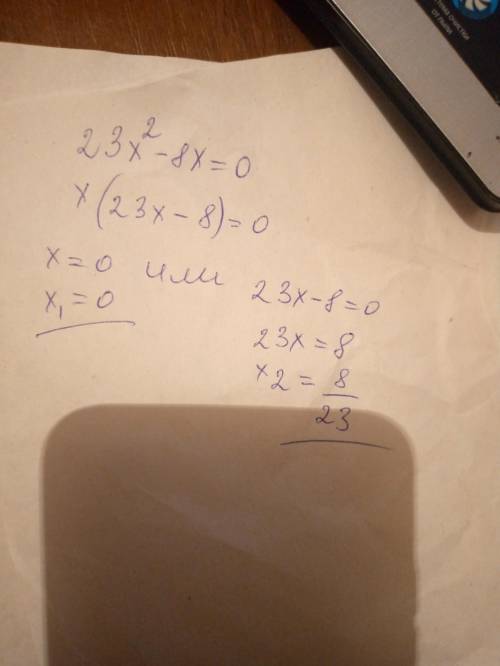 23x² - 8x = 0
x(23x - 8) = 0
x = 0 или 23x - 8 = 0
x₁ = 0
23x = 8
x2 = 8/23